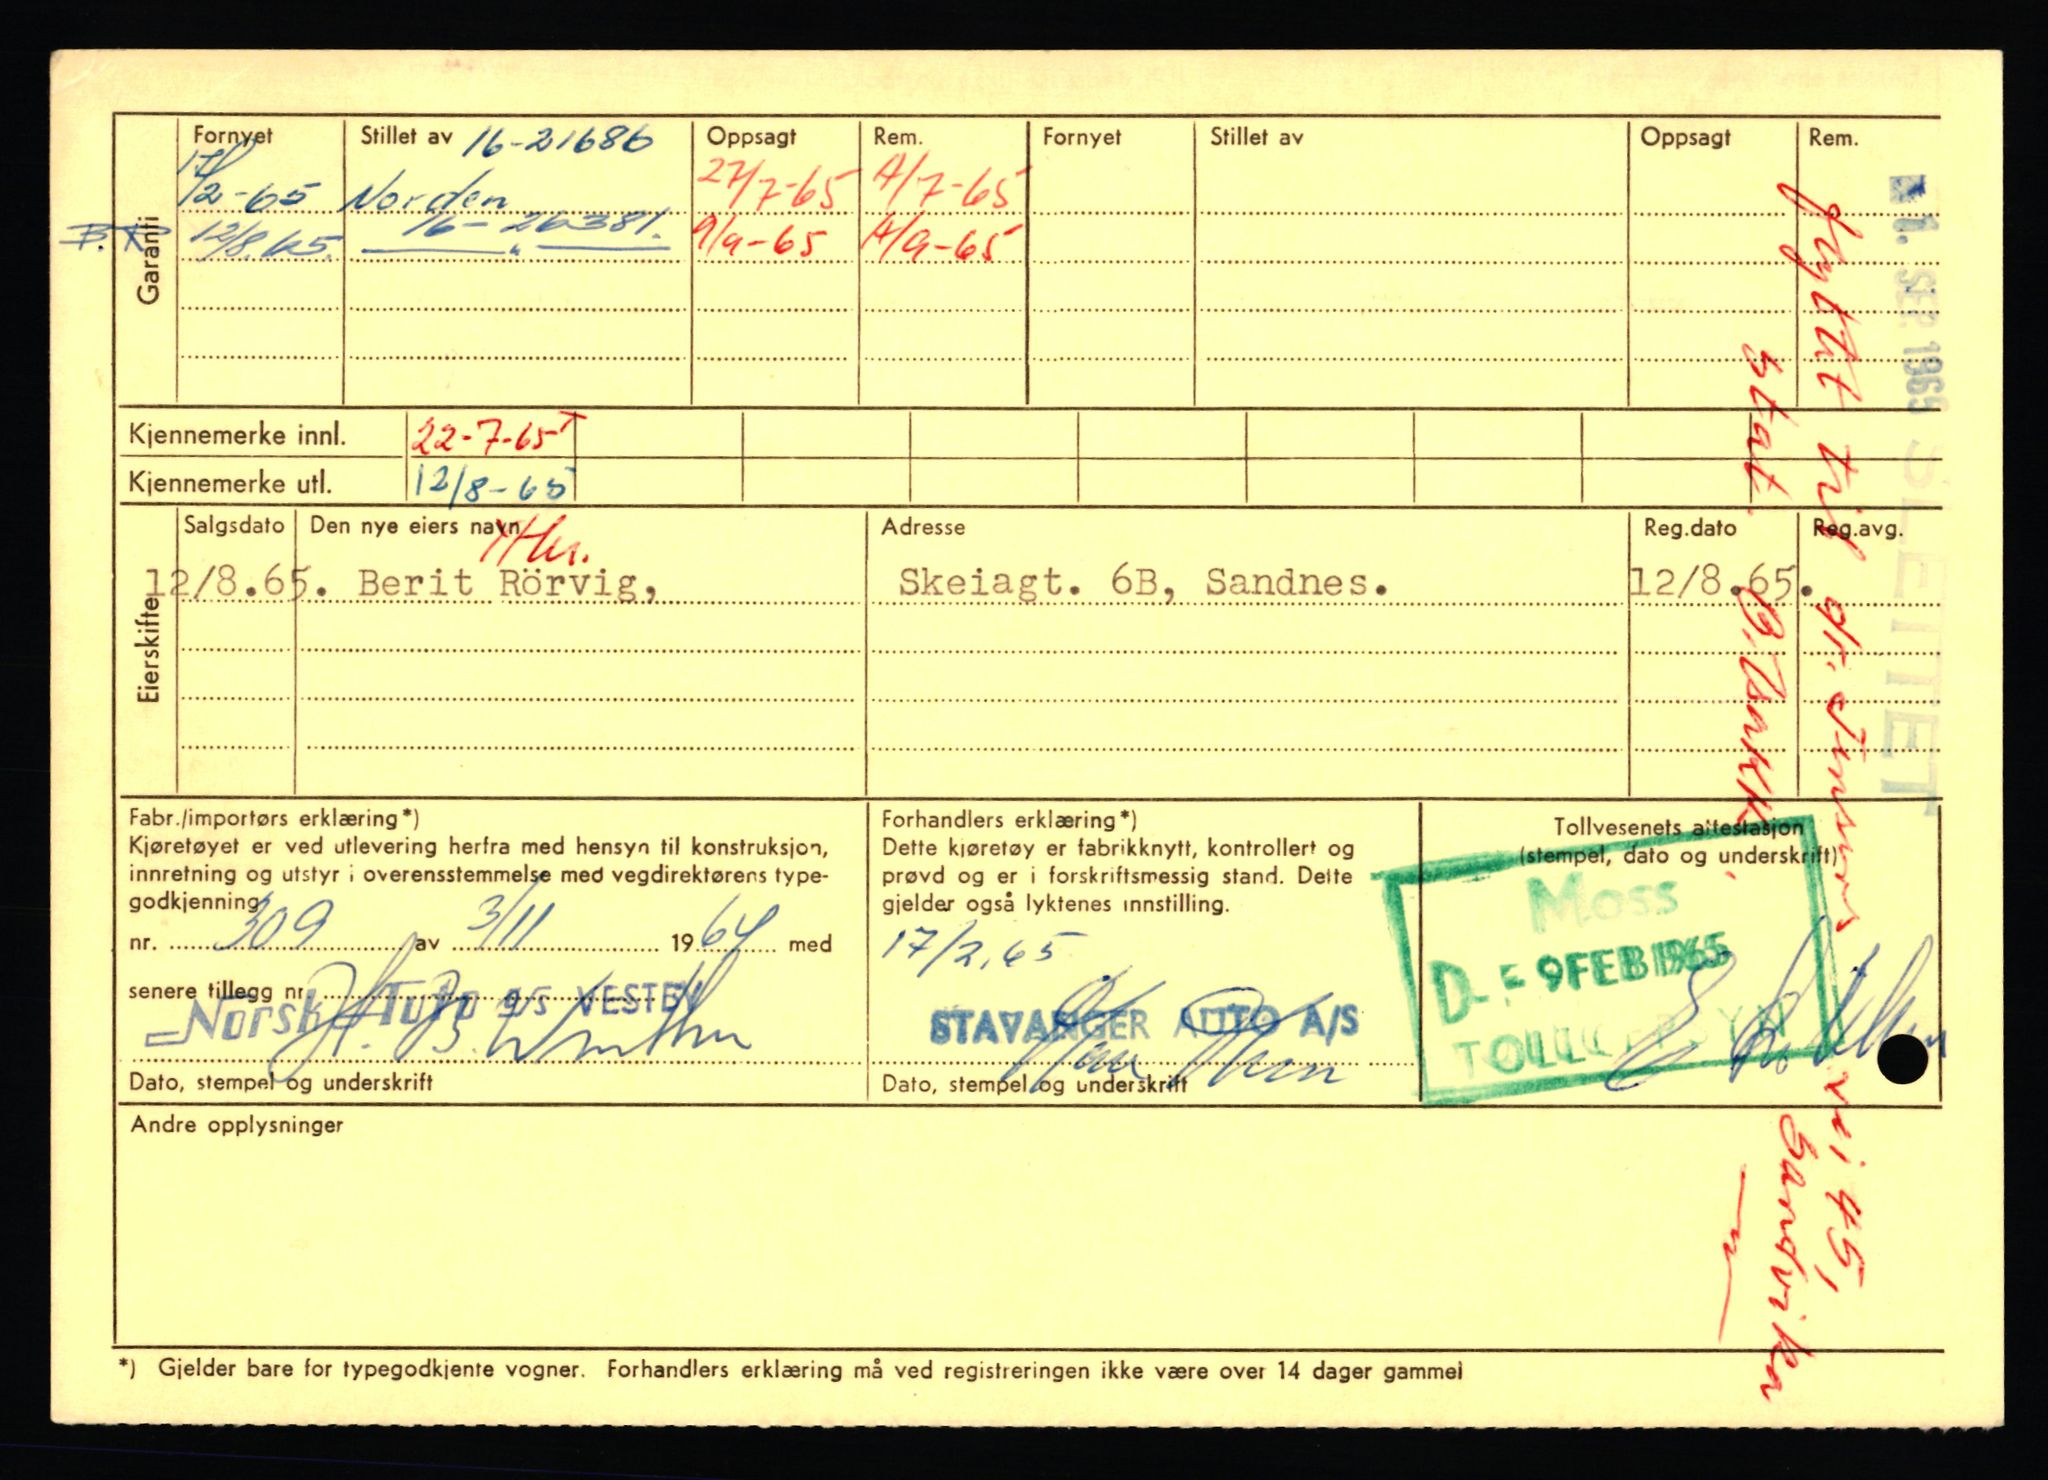 Garanti
Fornyet Stillet av 16-21686 Oppsagt Rem. Fornyet Stillet av Oppsagt Rem.
17/2-65 Norden 27/7-65 A/7-65
12/8.65. 16-26381. 9/9-65 A/9-65
Kjennemerke innl. 22-7-65
Kjennemerke utl. 12/8-65
Eierskifte
Salgsdato Den nye eiers navn Adresse Reg.dato Reg.avg.
12/8.65. Berit Rörvig, Skeiagt. 6B, Sandnes. 12/8.65.
Fabr./importørs erklæring*)
Kjøretøyet er ved utlevering herfra med hensyn til konstruksjon,
innretning og utstyr i overensstemmelse med vegdirektørens type-
godkjenning
nr. 309 av 3/11 1964 med
senere tillegg nr.
Norsk Auto A/S VESTBY
Dato, stempel og underskrift
Forhandlers erklæring*)
Dette kjøretøy er fabrikknytt, kontrollert og
prøvd og er i forskriftsmessig stand. Dette
gjelder også lyktenes innstilling.
17/2.65
STAVANGER AUTO A/S
Dato, stempel og underskrift
Tollvesenets attestasjon
(stempel, dato og underskrift)
Moss
9 FEB 1965
Andre opplysninger
*) Gjelder bare for typegodkjente vogner. Forhandlers erklæring må ved registreringen ikke være over 14 dager gammel
SEP. 1965 SLETTET
flyttet til gr.
vei 45,
Sandvika
stat.